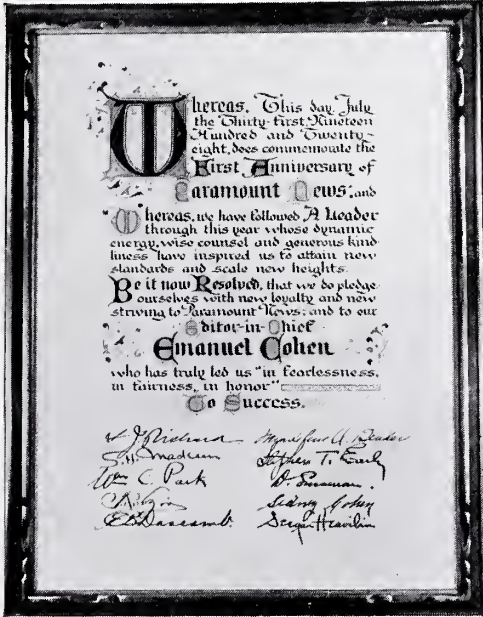 Whereas, This day, July
the Thirty-first, Nineteen
Hundred and Twenty-
eight, does commemorate the
First Anniversary of
Paramount News; and
Whereas, we have followed A Leader
through this year whose dynamic
energy, wise counsel and generous kind-
liness have inspired us to attain new
standards and scale new heights.
Be it now Resolved, that we do pledge
ourselves with new loyalty and new
striving to Paramount News; and to our
Editor-in-Chief
Emanuel Cohen
who has truly led us "in fearlessness,
in fairness, in honor"
To Success.
A.
Stephen T. Early
Wm C. Park
Sidney Cohen